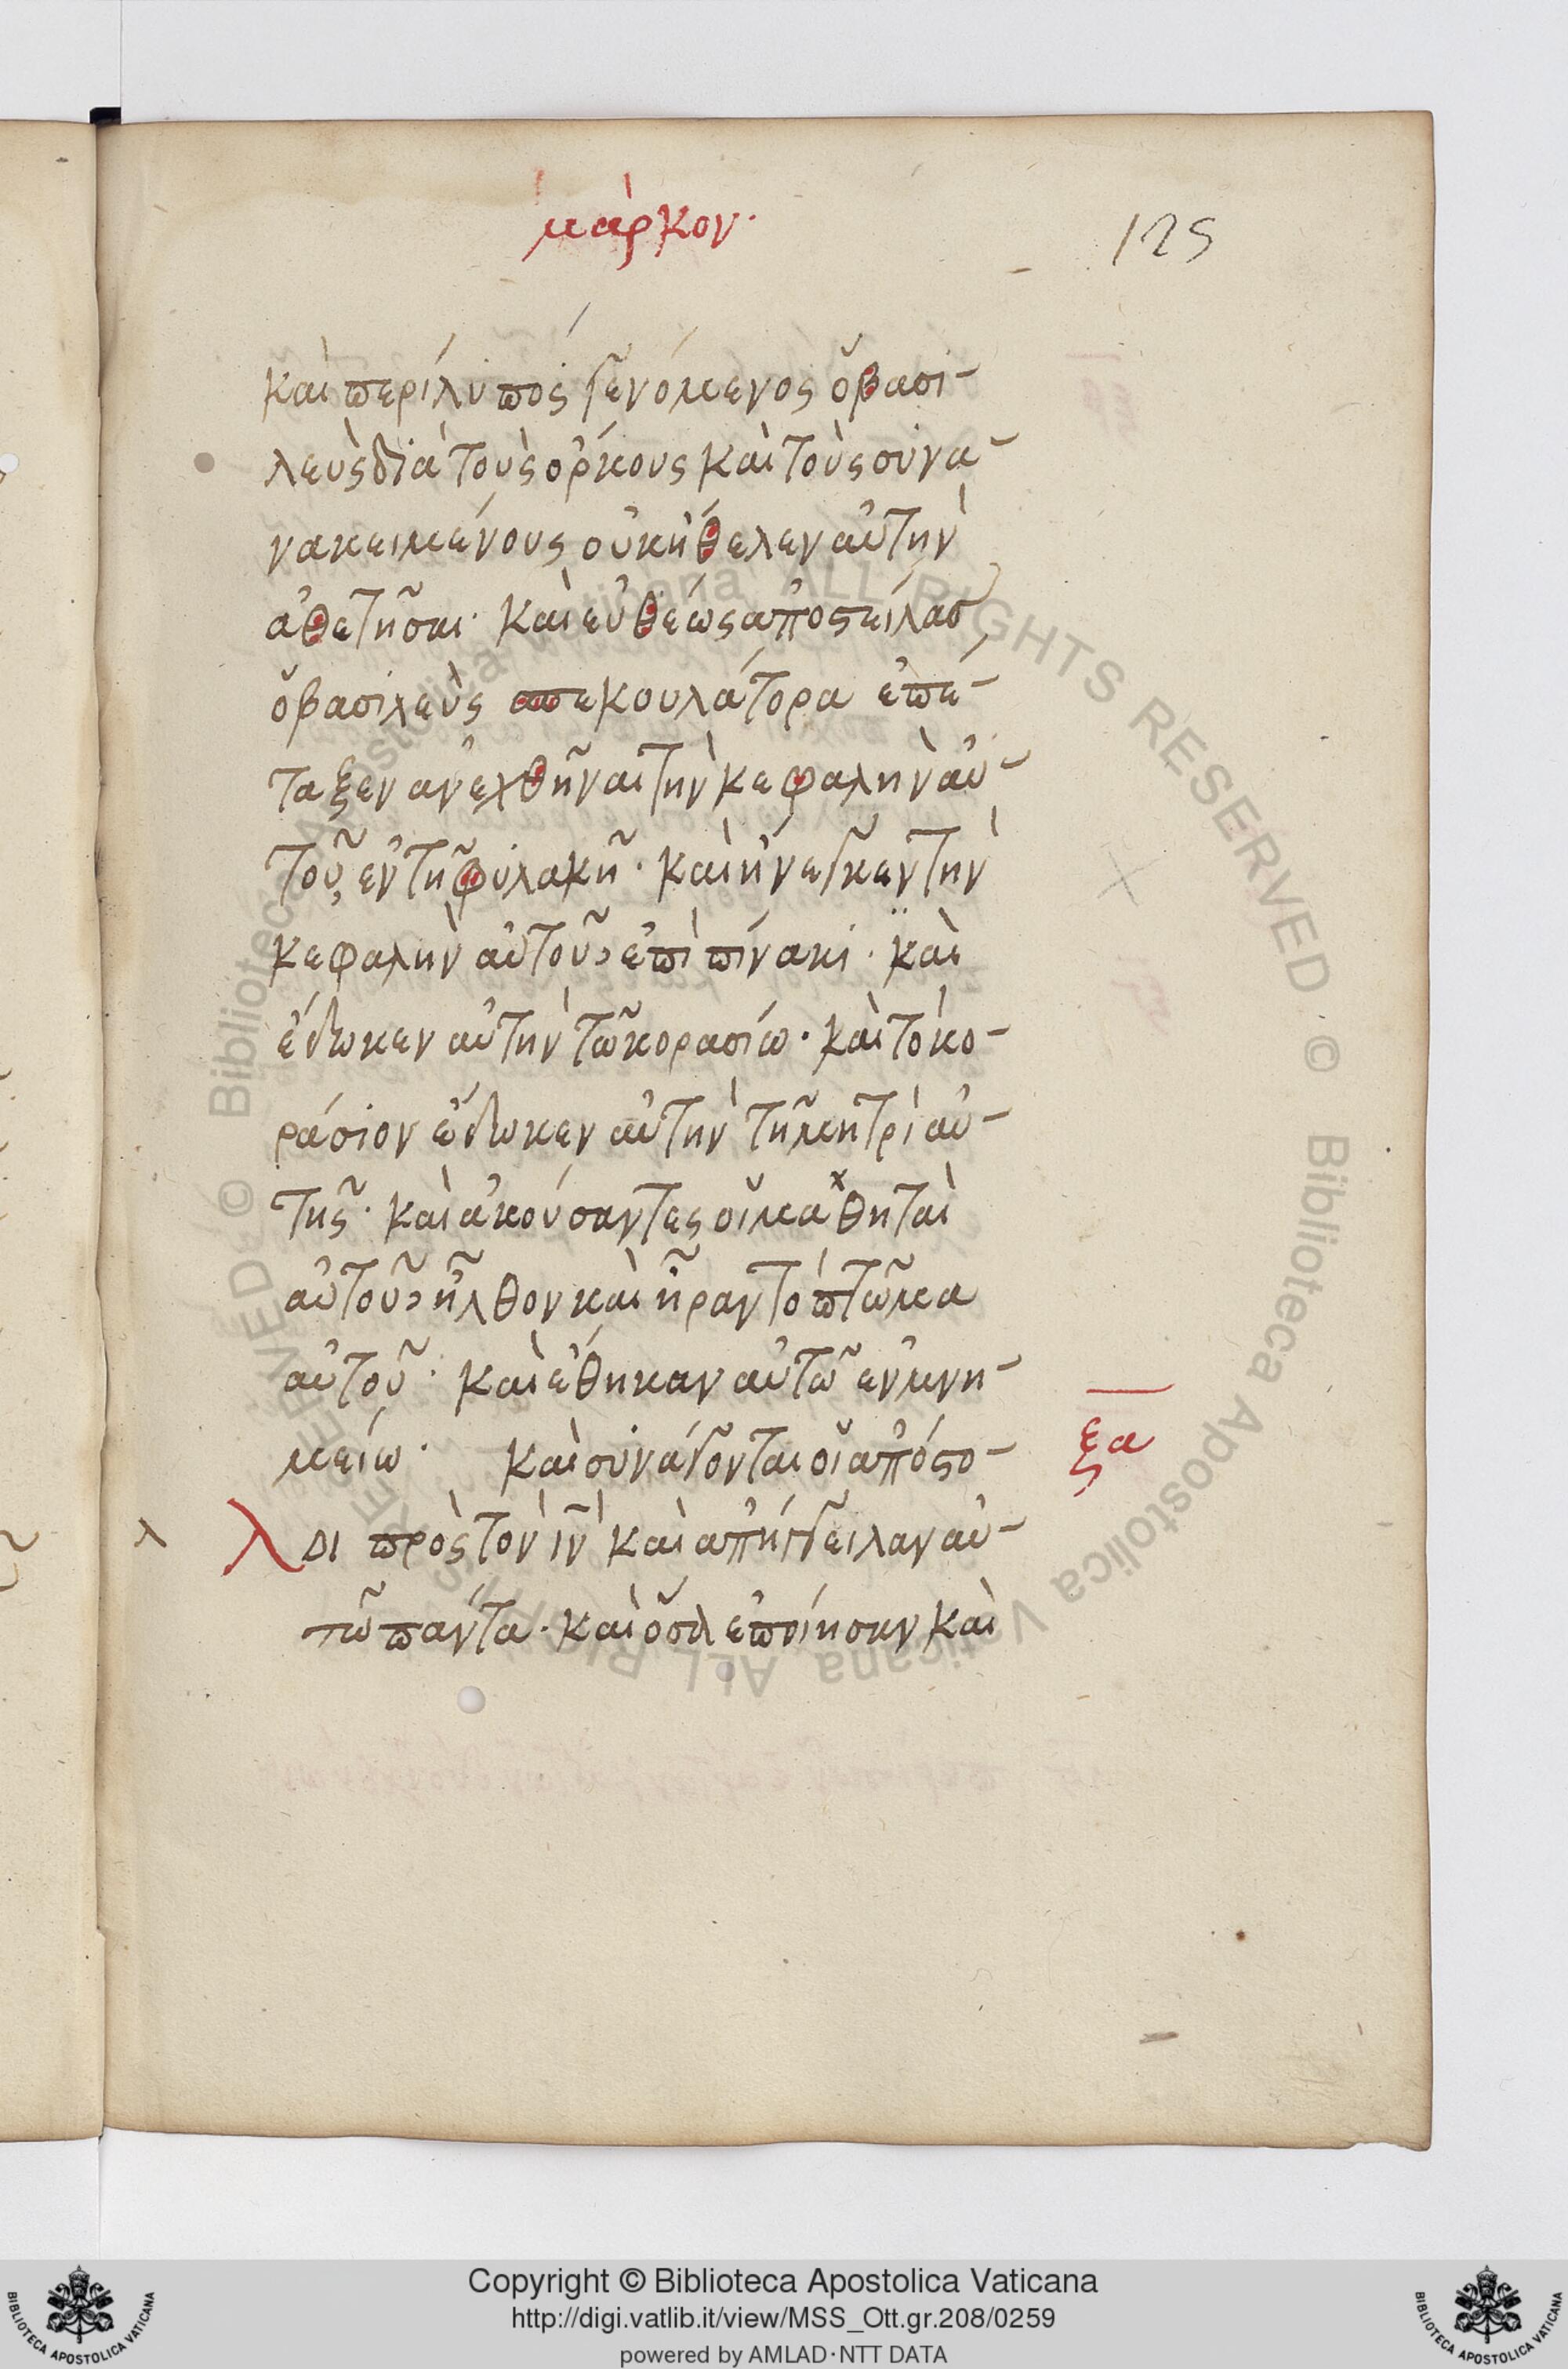 μάρκον·
125
καὶ περίλυπος γενόμενος ὁ βασι-
λεὺς διὰ τοὺς ὅρκους καὶ τοὺς συνα-
νακειμένους οὐκ ἠθέλεν αὐτὴν
ἀθετῆσαι· καὶ εὐθέως ἀποστείλας
ὁ βασιλεὺς σπεκουλάτορα ἐπέ-
ταξεν ἀνεχθῆναι τὴν κεφαλὴν αὐ-
τοῦ, ἐν τῆ φυλακῆ· καὶ ἤνεγκεν τὴν
κεφαλὴν αὐτοῦ, ἐπὶ πίνακι· καὶ
ἔδωκεν αὐτὴν τῶ κορασίω· καὶ τὸ κο-
ράσιον ἔδωκεν αὐτὴν τῆ μητρὶ αὐ-
τῆς· καὶ ἀκούσαντες οἱ μαθηταὶ
αὐτοῦ, ἦλθον καὶ ἦραν τὸ πτῶμα
αὐτοῦ· καὶ ἔθηκαν αὐτῶ ἐν μνη-
μείω· καὶ συνάγονται οἱ ἀπόστο-
ξα
λ λοι πρὸς τὸν ιν καὶ ἀπήγγειλαν αὐ-
τῶ πάντα· καὶ ὅσα ἐποίησαν καὶ
© Biblioteca Apostolica Vaticana ALL RIGHTS RESERVED © Biblioteca Apostolica Vaticana ALL RIGHTS RESERVED
Copyright © Biblioteca Apostolica Vaticana
http://digi.vatlib.it/view/MSS_Ott.gr.208/0259
powered by AMLAD·NTT DATA
BIBLIOTECA APOSTOLICA VATICANA
BIBLIOTECA APOSTOLICA VATICANA